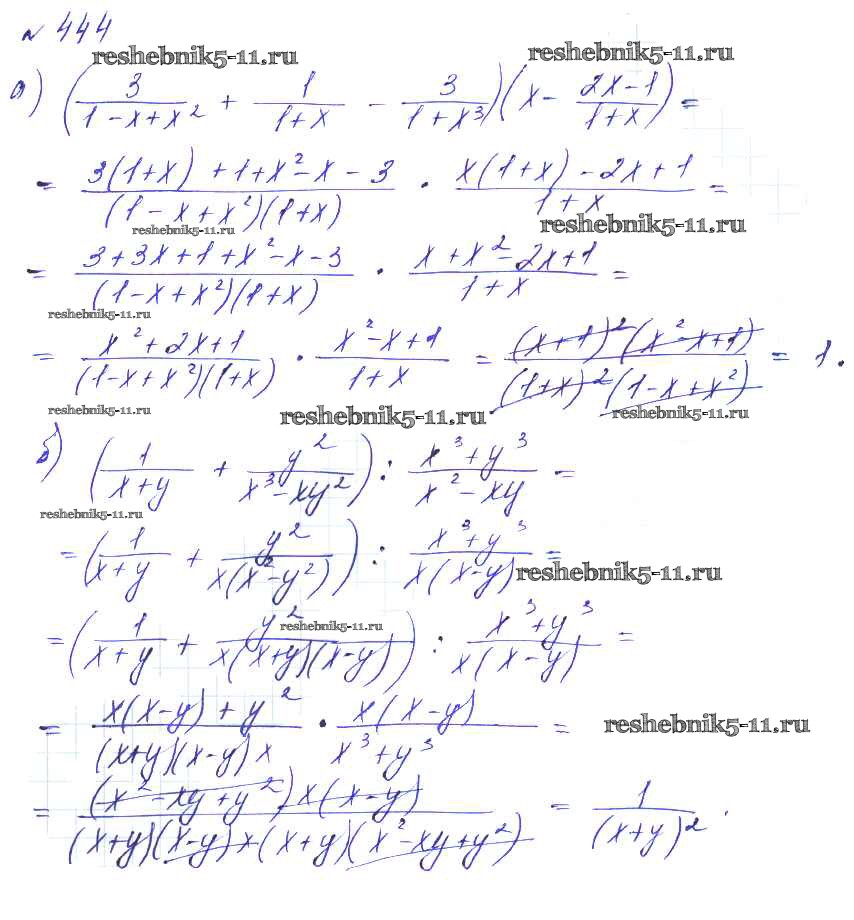 № 444
reshebnik5-11.ru reshebnik5-11.ru
а) (3/(1-x+x²) + 1/(1+x) - 3/(1+x³))(x - (2x-1)/(1+x)) =
= (3(1+x)+1+x²-x-3)/((1-x+x²)(1+x)) · (x(1+x)-2x+1)/(1+x) =
reshebnik5-11.ru reshebnik5-11.ru
= (3+3x+1+x²-x-3)/((1-x+x²)(1+x)) · (x+x²-2x+1)/(1+x) =
reshebnik5-11.ru
= (x²+2x+1)/((1-x+x²)(1+x)) · (x²-x+1)/(1+x) = ((x+1)²(x²-x+1))/((1+x)²(1-x+x²)) = 1.
reshebnik5-11.ru reshebnik5-11.ru reshebnik5-11.ru
б) (1/(x+y) + y²/(x³-xy²)) : (x³+y³)/(x²-xy) =
reshebnik5-11.ru
= (1/(x+y) + y²/(x(x²-y²))) : (x³+y³)/(x(x-y)) =
reshebnik5-11.ru
= (1/(x+y) + y²/(x(x+y)(x-y))) : (x³+y³)/(x(x-y)) =
reshebnik5-11.ru
= (x(x-y)+y²)/((x+y)(x-y)x) · (x(x-y))/(x³+y³) =
reshebnik5-11.ru
= ((x²-xy+y²)x(x-y))/((x+y)(x-y)x(x+y)(x²-xy+y²)) = 1/(x+y)².